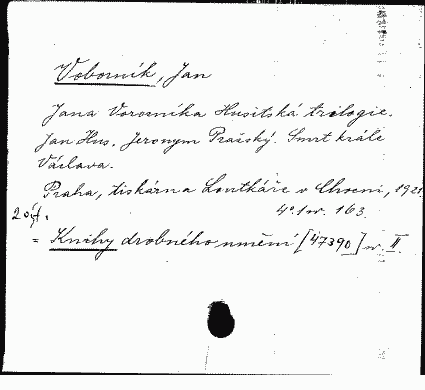 Voborník, Jan
Jana Vorovníka Husitská trilogie.
Jan Hus. Jeronym Pražský. Smrt krále
Václava.
Praha, tiskárna Loutkáře v Choceni, 1921.
4° 1 w. 163.
= Knihy drobného umění [47390] w. II